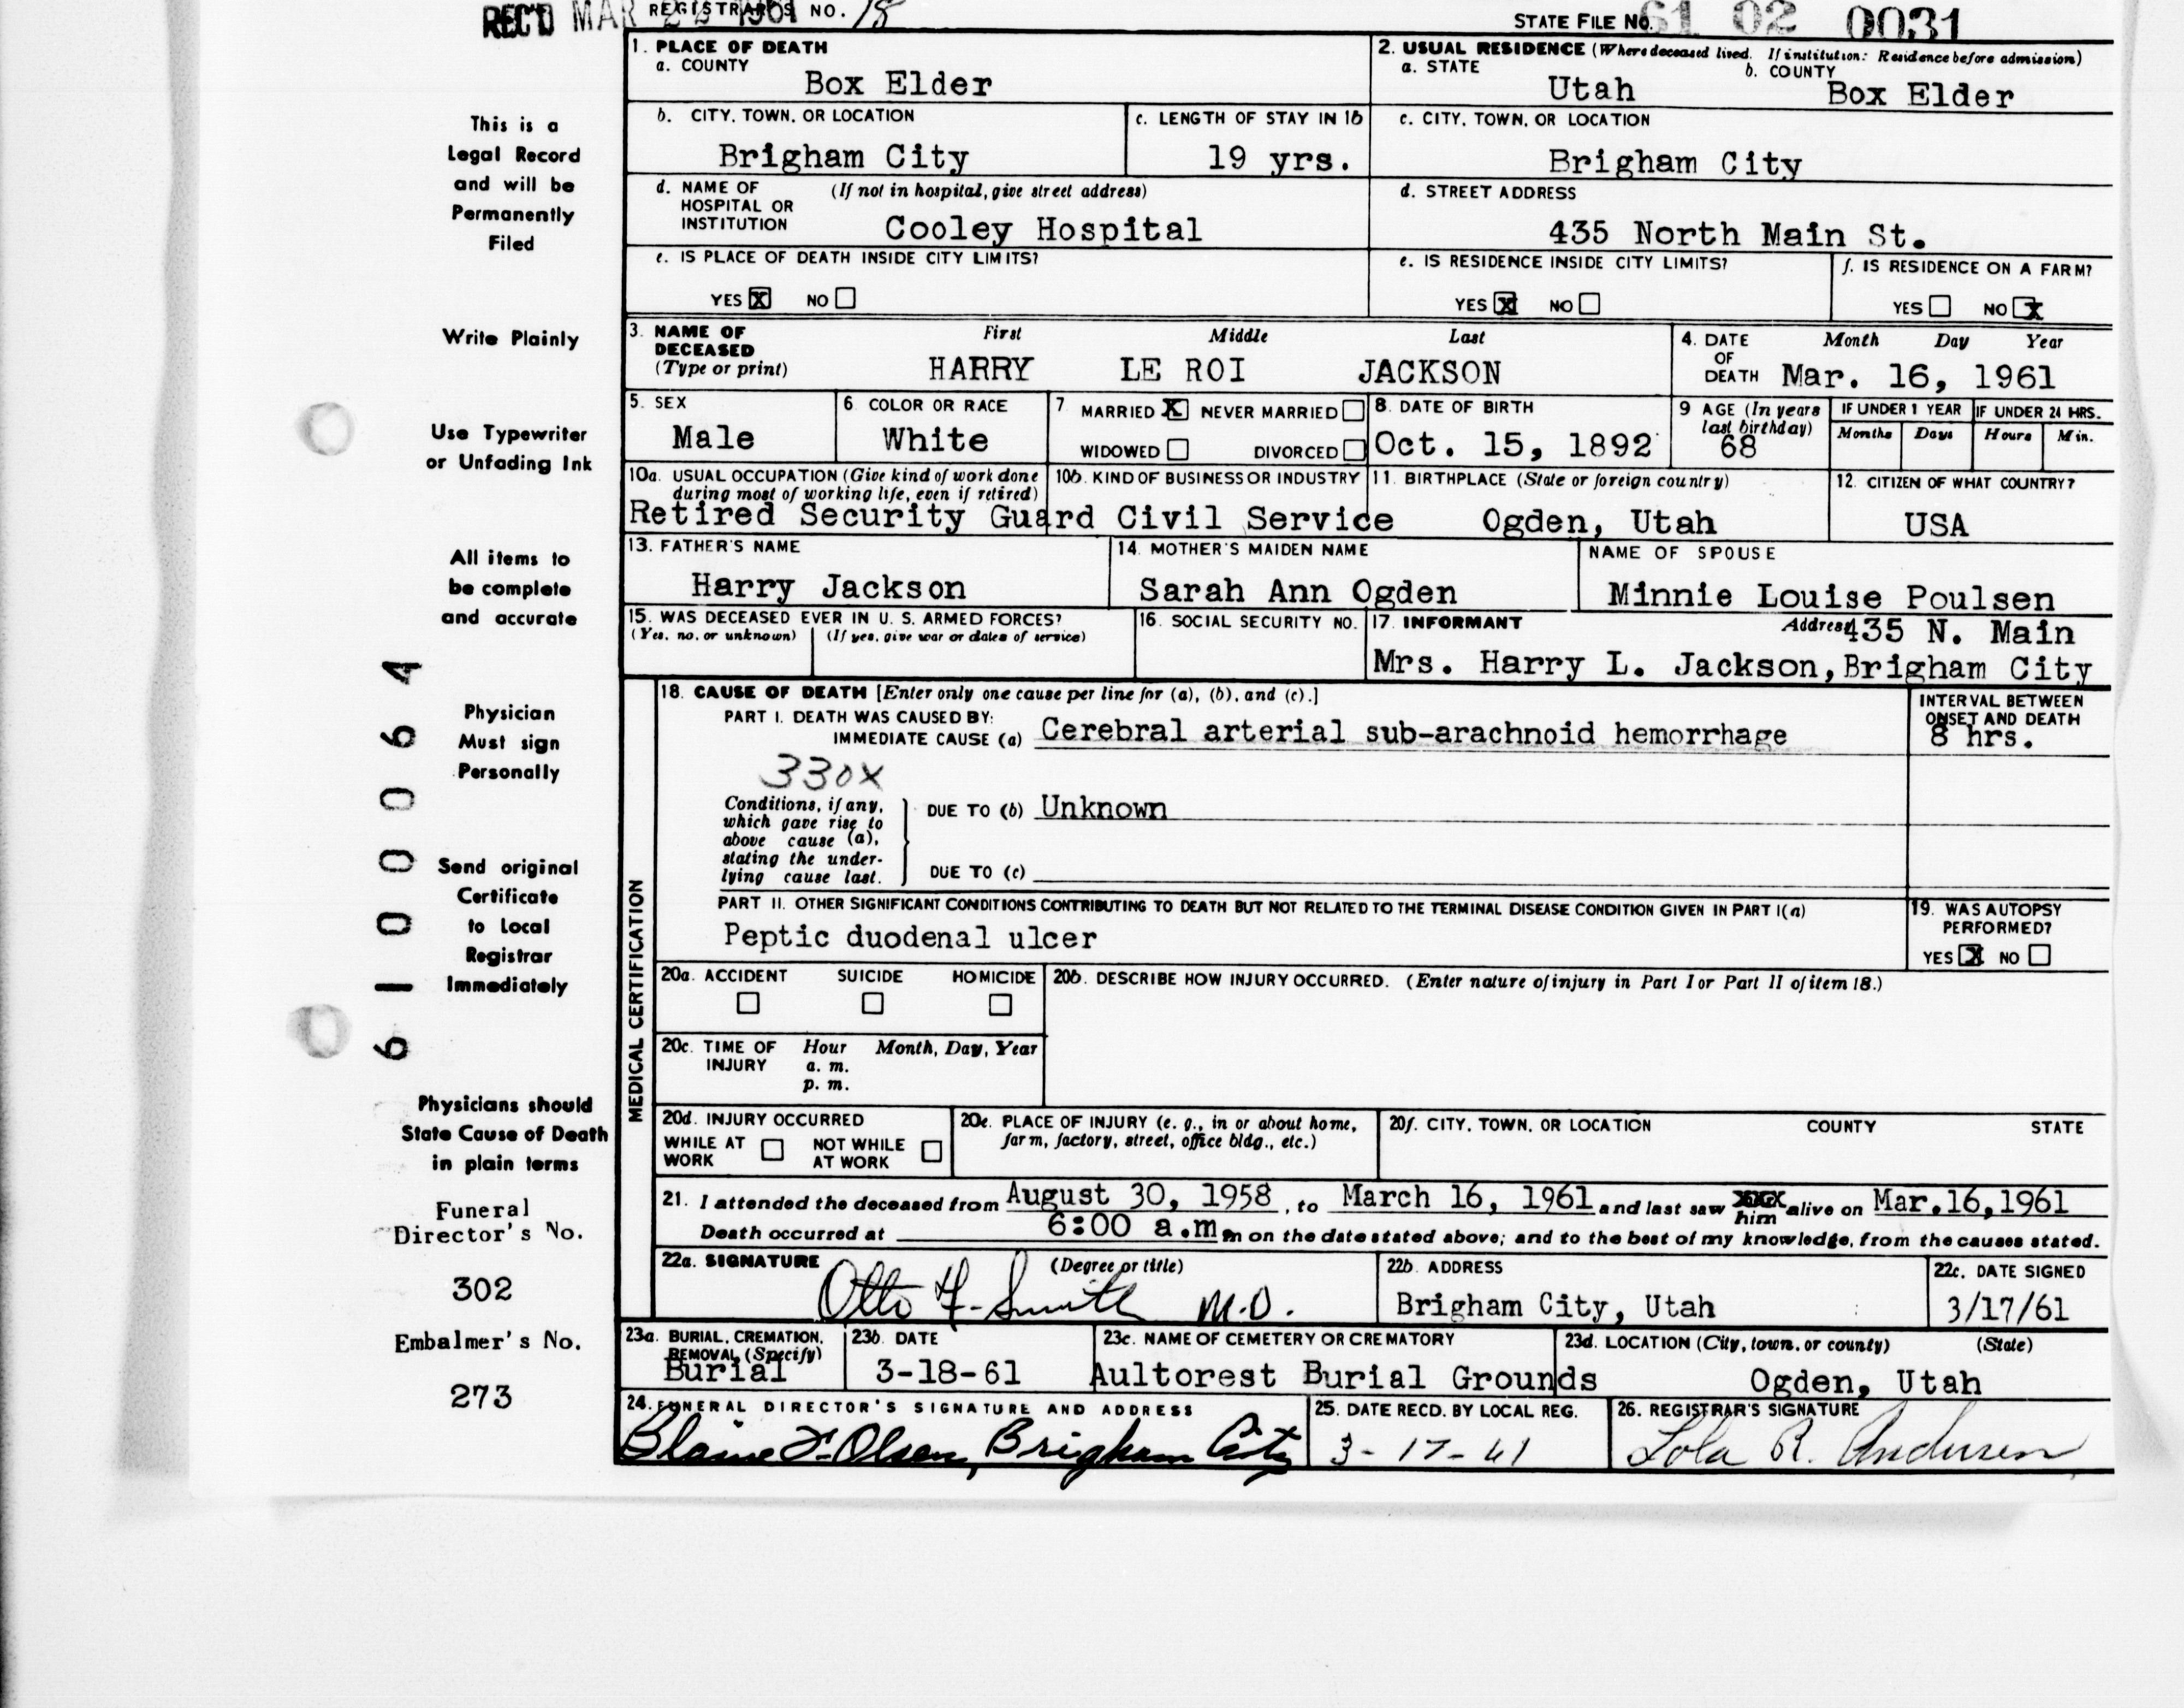 REC'D MAR 1961 REGISTRAR'S NO. 18
STATE FILE NO. 61 02 0031
1. PLACE OF DEATH
a. COUNTY
Box Elder
2. USUAL RESIDENCE (Where deceased lived. If institution: Residence before admission)
a. STATE
Utah
b. COUNTY
Box Elder
This is a
Legal Record
and will be
Permanently
Filed
b. CITY, TOWN, OR LOCATION
Brigham City
c. LENGTH OF STAY IN 1b
19 yrs.
c. CITY, TOWN, OR LOCATION
Brigham City
d. NAME OF (If not in hospital, give street address)
HOSPITAL OR
INSTITUTION Cooley Hospital
d. STREET ADDRESS
435 North Main St.
e. IS PLACE OF DEATH INSIDE CITY LIMITS?
YES X NO
e. IS RESIDENCE INSIDE CITY LIMITS?
YES X NO
f. IS RESIDENCE ON A FARM?
YES NO X
Write Plainly
3. NAME OF First Middle Last
DECEASED
(Type or print) HARRY LE ROI JACKSON
4. DATE Month Day Year
OF
DEATH Mar. 16, 1961
Use Typewriter
or Unfading Ink
5. SEX
Male
6 COLOR OR RACE
White
7 MARRIED X NEVER MARRIED
WIDOWED DIVORCED
8. DATE OF BIRTH
Oct. 15, 1892
9 AGE (In years
last birthday)
68
IF UNDER 1 YEAR
Months Days
IF UNDER 24 HRS.
Hours Min.
10a. USUAL OCCUPATION (Give kind of work done
during most of working life, even if retired)
Retired Security Guard
10b. KIND OF BUSINESS OR INDUSTRY
Civil Service
11. BIRTHPLACE (State or foreign country)
Ogden, Utah
12. CITIZEN OF WHAT COUNTRY?
USA
All items to
be complete
and accurate
13. FATHER'S NAME
Harry Jackson
14. MOTHER'S MAIDEN NAME
Sarah Ann Ogden
NAME OF SPOUSE
Minnie Louise Poulsen
15. WAS DECEASED EVER IN U. S. ARMED FORCES?
(Yes, no, or unknown) (If yes, give war or dates of service)
16. SOCIAL SECURITY NO.
17. INFORMANT Address 435 N. Main
Mrs. Harry L. Jackson, Brigham City
6100064
Physician
Must sign
Personally
MEDICAL CERTIFICATION
18. CAUSE OF DEATH [Enter only one cause per line for (a), (b), and (c).]
PART I. DEATH WAS CAUSED BY:
IMMEDIATE CAUSE (a) Cerebral arterial sub-arachnoid hemorrhage
INTERVAL BETWEEN
ONSET AND DEATH
8 hrs.
330X
Conditions, if any,
which gave rise to
above cause (a),
stating the under-
lying cause last.
DUE TO (b) Unknown
DUE TO (c)
Send original
Certificate
to Local
Registrar
Immediately
PART II. OTHER SIGNIFICANT CONDITIONS CONTRIBUTING TO DEATH BUT NOT RELATED TO THE TERMINAL DISEASE CONDITION GIVEN IN PART I(a)
Peptic duodenal ulcer
19. WAS AUTOPSY
PERFORMED?
YES X NO
20a. ACCIDENT SUICIDE HOMICIDE
20b. DESCRIBE HOW INJURY OCCURRED. (Enter nature of injury in Part I or Part II of item 18.)
20c. TIME OF Hour Month, Day, Year
INJURY a. m.
p. m.
Physicians should
State Cause of Death
in plain terms
20d. INJURY OCCURRED
WHILE AT NOT WHILE
WORK AT WORK
20e. PLACE OF INJURY (e. g., in or about home,
farm, factory, street, office bldg., etc.)
20f. CITY, TOWN, OR LOCATION COUNTY STATE
21. I attended the deceased from August 30, 1958, to March 16, 1961 and last saw him alive on Mar.16,1961
Death occurred at 6:00 a.m. m on the date stated above; and to the best of my knowledge, from the causes stated.
Funeral
Director's No.
302
22a. SIGNATURE (Degree or title)
Otto F. Smith M.D.
22b. ADDRESS
Brigham City, Utah
22c. DATE SIGNED
3/17/61
Embalmer's No.
273
23a. BURIAL, CREMATION,
REMOVAL (Specify)
Burial
23b. DATE
3-18-61
23c. NAME OF CEMETERY OR CREMATORY
Aultorest Burial Grounds
23d. LOCATION (City, town, or county) (State)
Ogden, Utah
24. FUNERAL DIRECTOR'S SIGNATURE AND ADDRESS
Blaine F. Olsen, Brigham City
25. DATE RECD. BY LOCAL REG.
3-17-61
26. REGISTRAR'S SIGNATURE
Lola R. Andersen